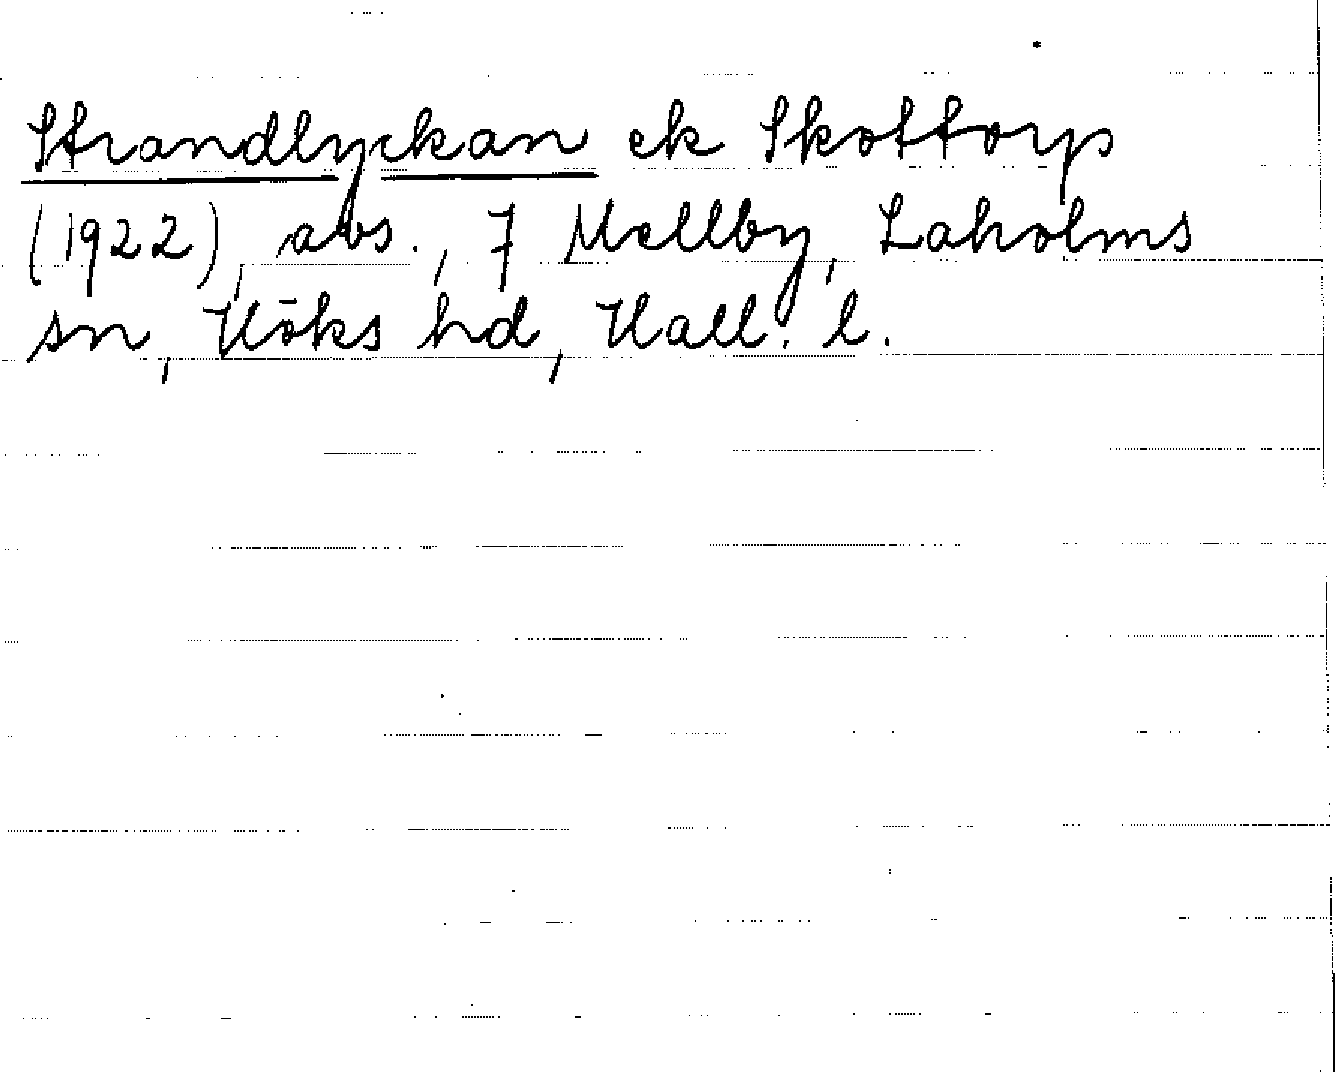 Strandlyckan ek Skottorp
(1922), avs., 7 Mellby, Laholms
sn, Höks hd, Hall. l.